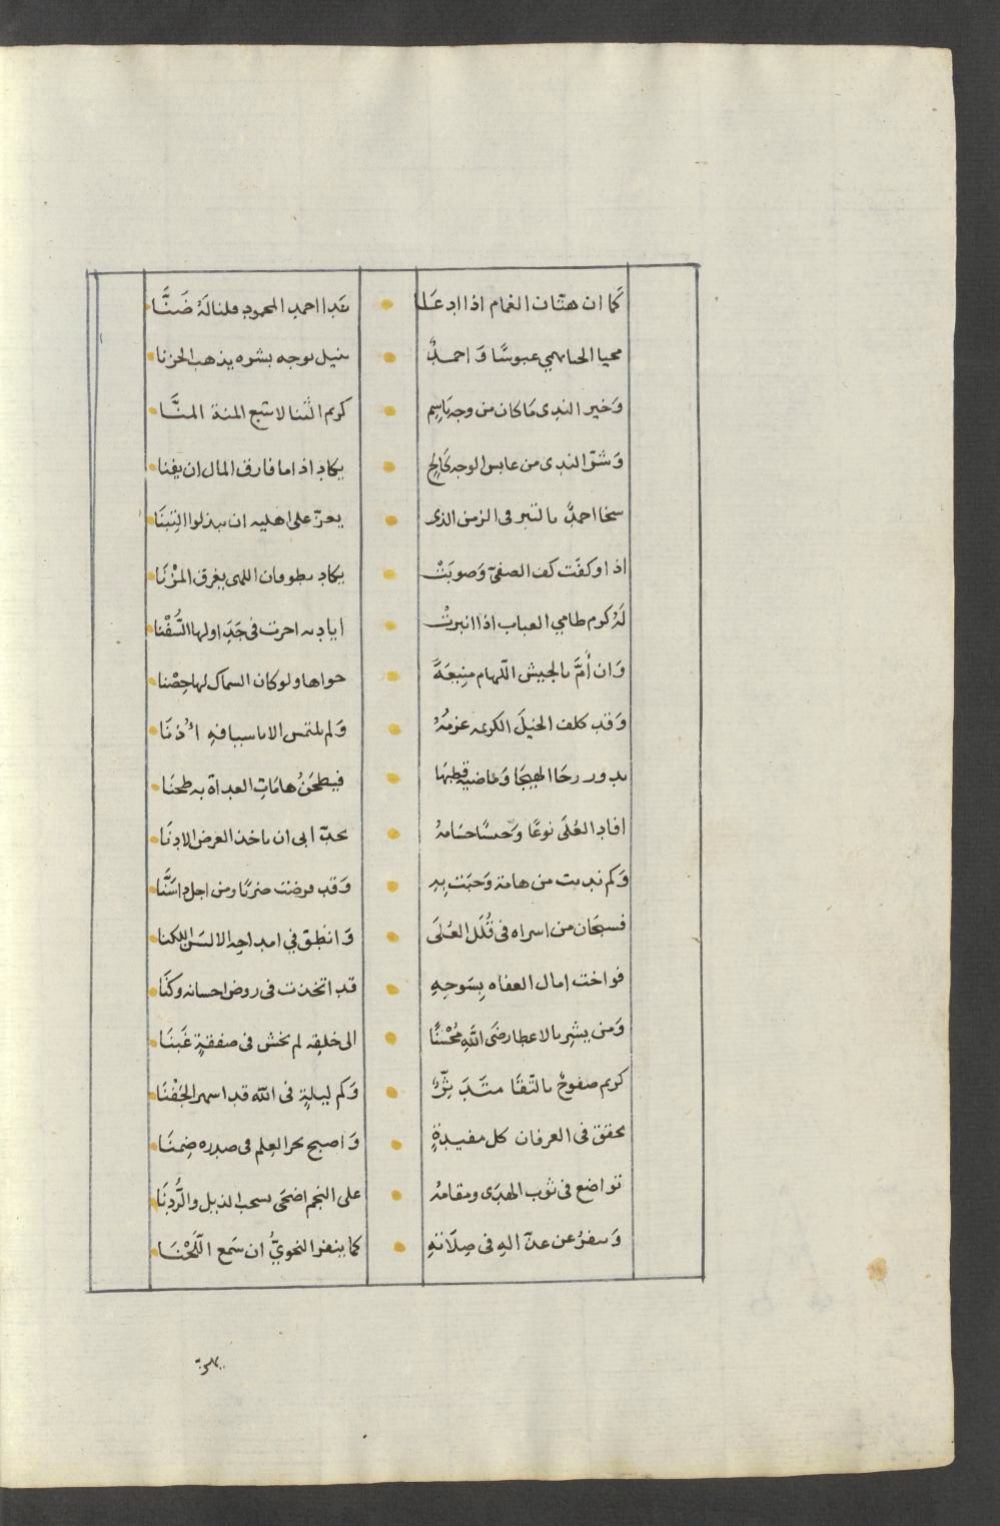 كما ان هتّان الغمام اذا ادعا غدا احمد المحمود قلنا لهُ ضَنَّا
محيا الحيا يهمي عبوسًا وَ احمدٌ ينيل بوجه بشره يذهب الحزنا
وَخير الندى مَا كان من وجه بَاسِمٍ كريم الثنا لا تتبع المنة المنَّا
وَشرّ الندى من عابس الوجه كَالِحٍ يكاد اذا ما فارق المال ان يفنا
سخا احمدٌ بالتبر فى الزمن الذى يعزّ على اهليه ان يبذلوا التِبنَا
اذا وكفَت كف الصفىّ وَصوبَتْ يكاد بطوفان اللهى يغرق المزْنَا
لهُ كرم طامي العباب اذا انبرتْ اياديه اجرت فى جَدَاولها السُّفْنا
وَان أَمَّ بالجيش اللّهام منيعَةً حواها ولو كان السماك لها حِصْنا
وَقد كلف الخيلَ الكريمه عزمُهُ وَلم يلتمس الا باسيافهِ اذْنَا
يدور رحَا الهيجَا وَماضيهِ قطبهَا فيطحَنُ هامَاتِ العداة به طحنَا
افاد العُلَى نوعًا وَجنسًا حسَامهُ بحدّ ابى ان ياخذ العرض الادنَا
وَكم ندبت من هامة وَجبَت بهِ وَقد فرضت ضربًا ومن اجله اسَنَّا
فسبحَان من اسراه فى قُلَل العُلَى وَانطق في امداحه الالسَن اللكنا
فواخت امال العفاه بِسَوحِهِ قد اتخذت فى روض احسانه وكنَا
وَمن يشتر بالاعطا رضَى اللهِ مُحْسنًا الى خلقه لم يخش فى صفقةٍ غَبنَا
كريم صفوحٌ بالتّقَا متَدَثِّرٌ وَكم ليلةٍ فى الله قد اسهر الجَفْنَا
يحقق فى العرفان كل مفيدةٍ وَاصبح بحر العِلم فى صدره ضِمنَا
تواضع فى ثوب الهدَى ومقامهُ على النجم اضحَى يسحب الذيل والرُّدنَا
وَينفرُ عن عذّالهِ فى صِلَاتهِ كما ينفر النحويُّ ان سَمع اللَّحْنَا